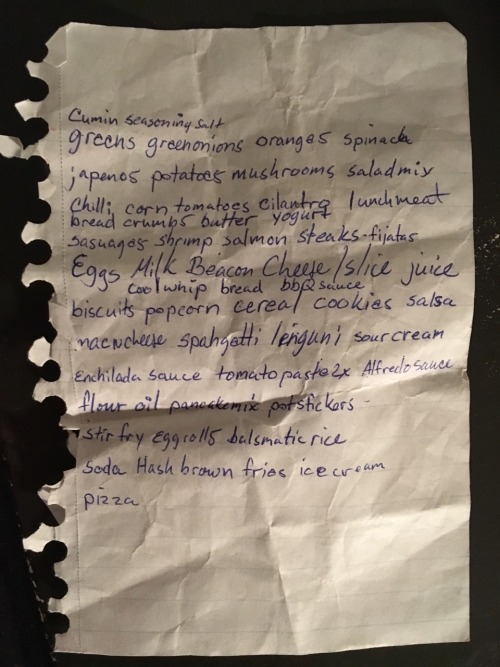 Cumin seasoning salt
greens greenonions oranges spinach
japenos potatoes mushrooms saladmix
Chilli corn tomatoes cilantro lunchmeat
bread crumbs butter yogurt
sasuages shrimp salmon steaks-fijatas
Eggs Milk Beacon Cheese/slice juice
coolwhip bread bbq sauce
biscuits popcorn cereal cookies salsa
macncheese spahgetti lenguni sourcream
Enchilada sauce tomatopaste2x Alfredo sauce
flour oil pancakemix potstickers -
stir fry eggrolls balsmatic rice
Soda Hashbrown fries icecream
pizza